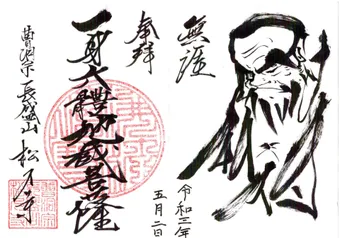 無涯
令和三年
五月二日
奉拝
一身六體地蔵菩薩
曹洞宗 長盛山 松寺